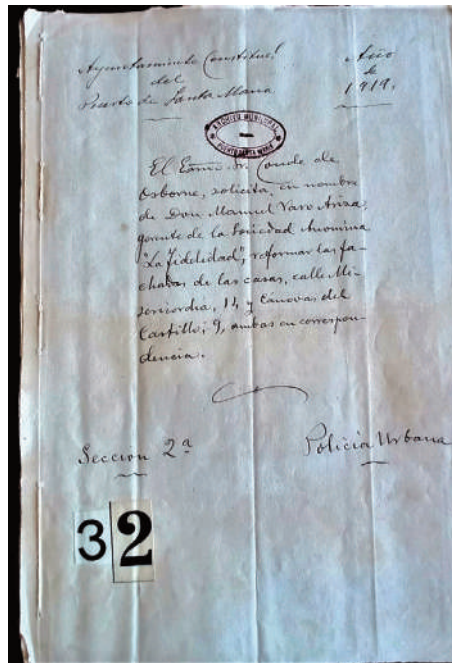 Ayuntamiento Constitucl.
del
Puerto de Santa Maria
Año
de
1919.
ARCHIVO MUNICIPAL
PUERTO SANTA MARIA
El Excmo. Sr. Conde de
Osborne, solicita, en nombre
de Don Manuel Varo Ariza,
gerente de la Sociedad Anonima
"La Fidelidad", reformar las fa-
chadas de las casas, calle Mi-
sericordia, 14 y Cánovas del
Castillo, 9, ambas en correspon-
dencia.
Seccion 2ª
Policía Urbana
32